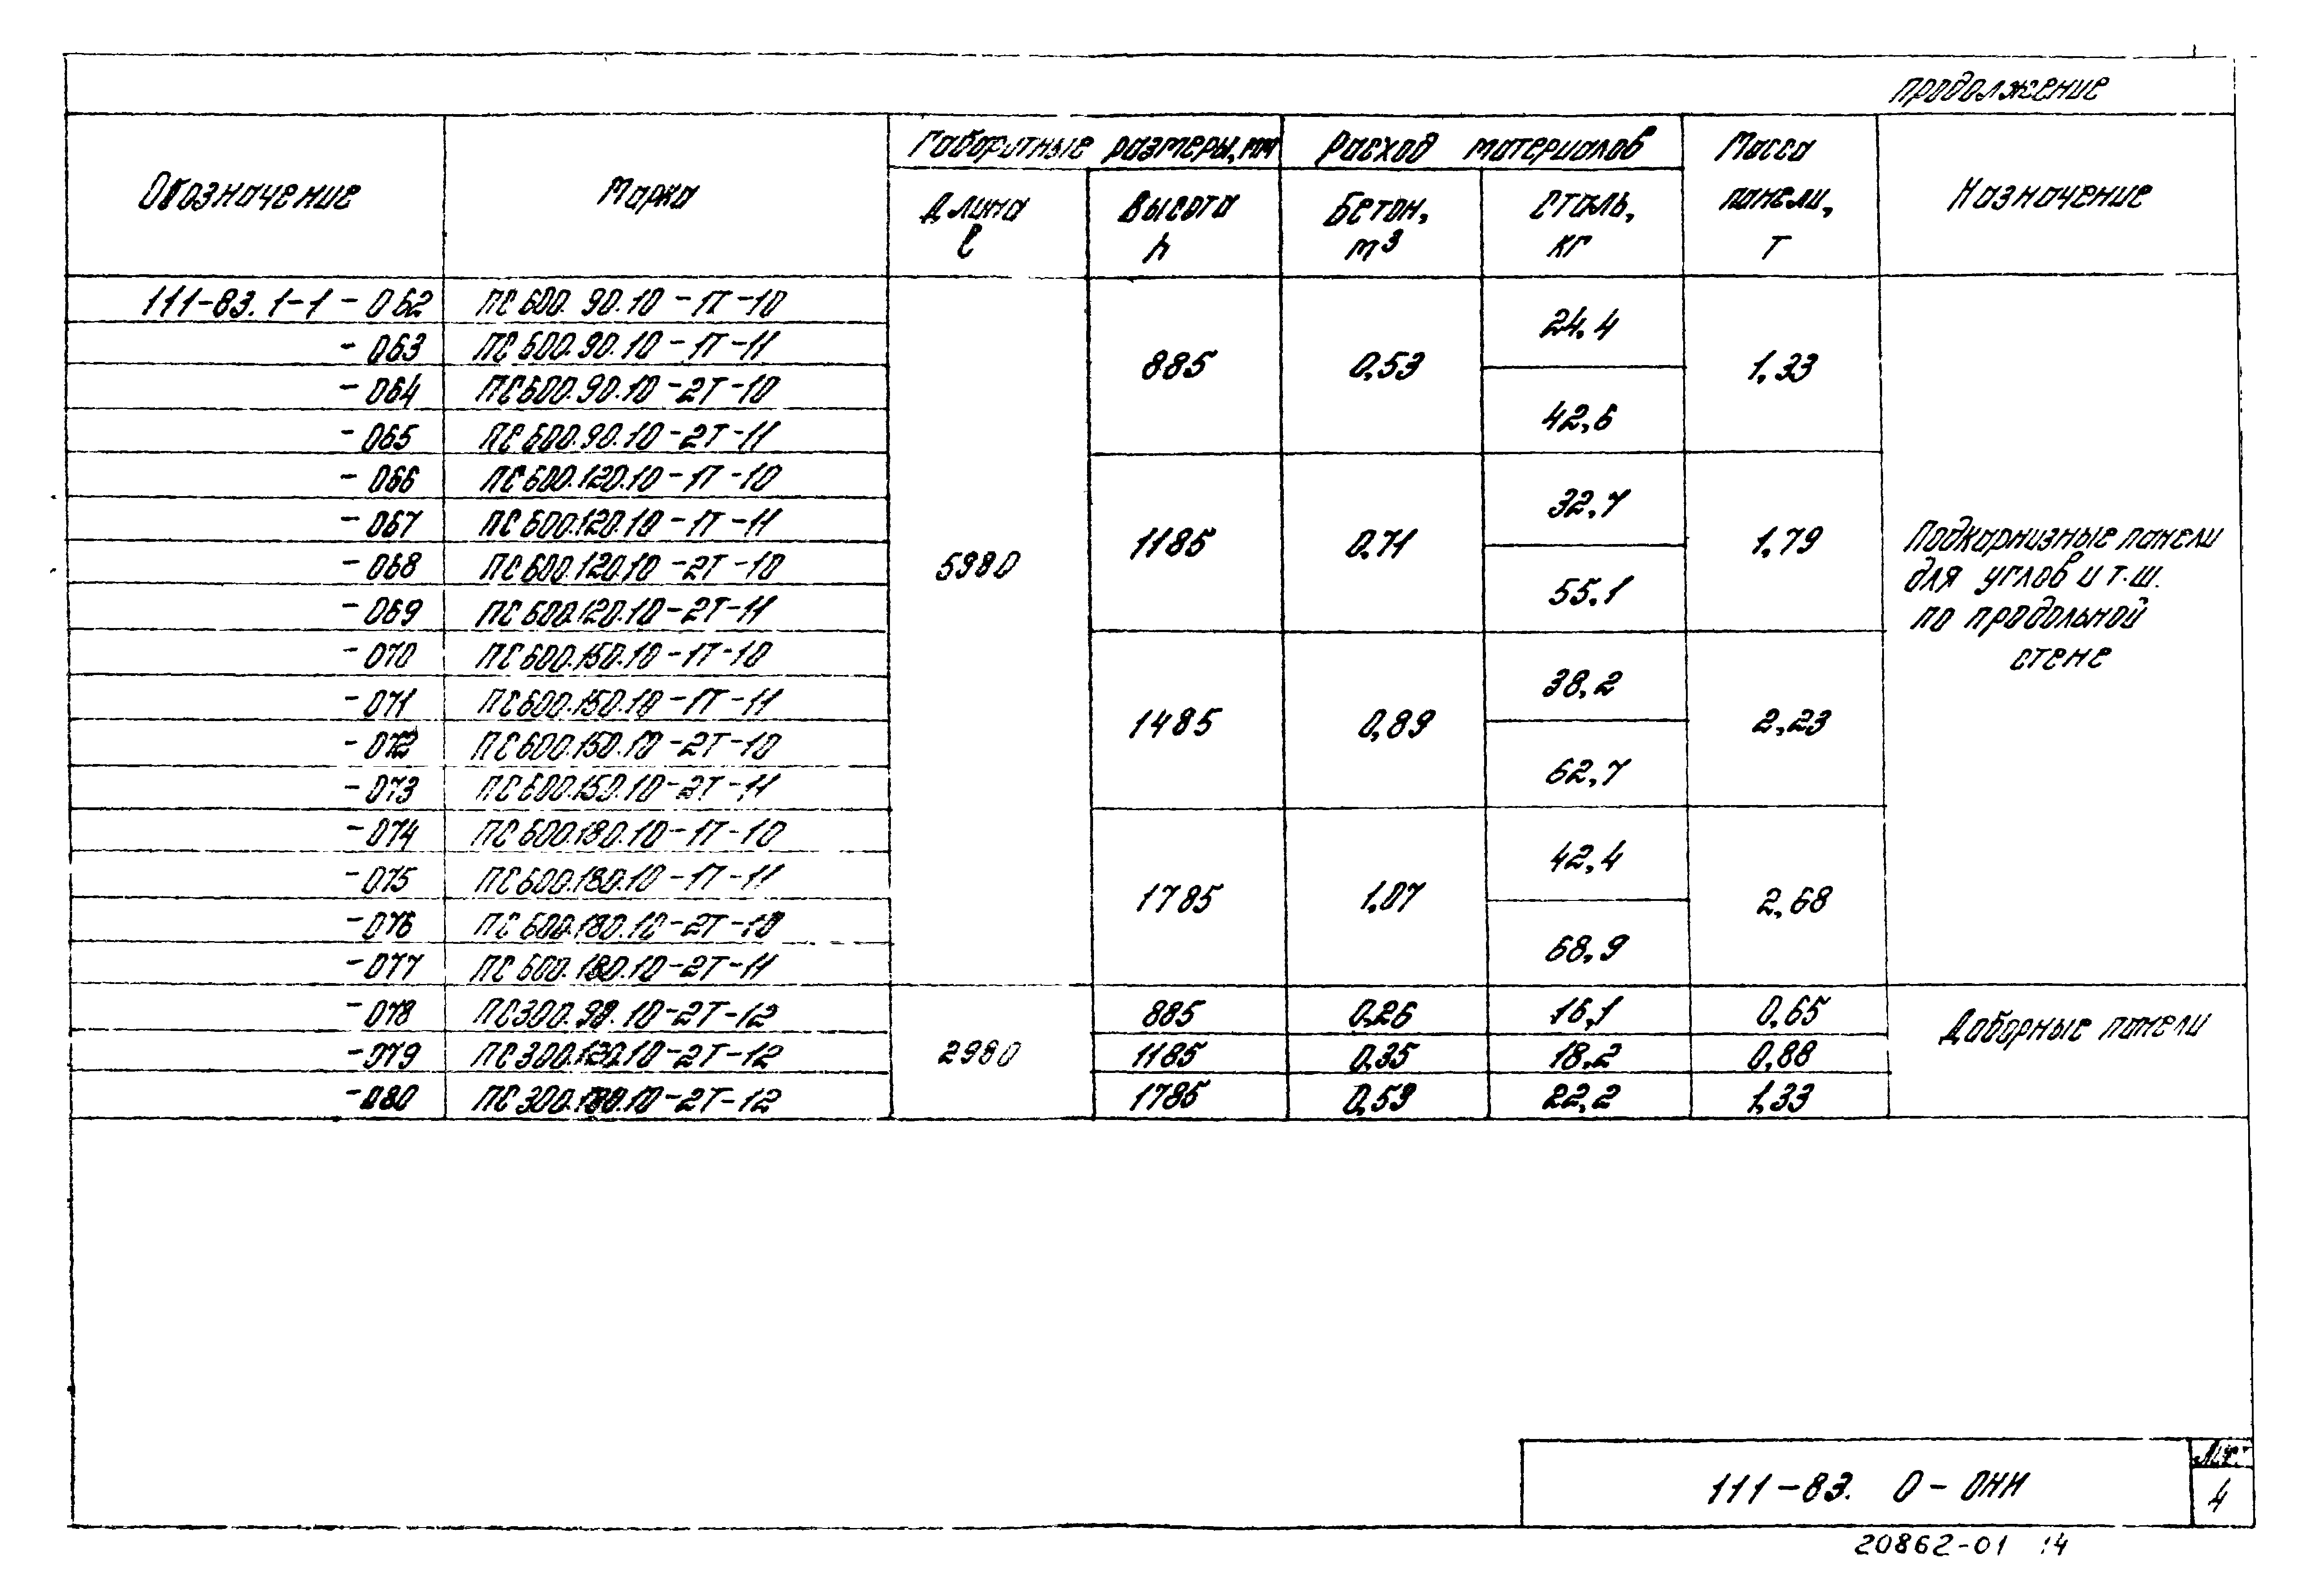 продолжение
Обозначение Марка Габоритные размеры, мм Расход материалов Масса панели, т Назначение
Длина l Высота h Бетон, м3 Сталь, кг
111-83.1-1-062 ПС600.90.10-1Т-10 5980 885 0,53 24.4 1,33 Подкарнизные панели
для углов и т.ш.
по продольной
стене
-063 ПС600.90.10-1Т-11
-064 ПС600.90.10-2Т-10 42,6
-065 ПС600.90.10-2Т-11
-066 ПС600.120.10-1Т-10 1185 0,71 32,7 1,79
-067 ПС600.120.10-1Т-11
-068 ПС600.120.10-2Т-10 55,1
-069 ПС600.120.10-2Т-11
-070 ПС600.150.10-1Т-10 1485 0,89 38,2 2,23
-071 ПС600.150.10-1Т-11
-072 ПС600.150.10-2Т-10 62,7
-073 ПС600.150.10-2Т-11
-074 ПС600.180.10-1Т-10 1785 1,07 42,4 2,68
-075 ПС600.180.10-1Т-11
-076 ПС600.180.10-2Т-10 68,9
-077 ПС600.180.10-2Т-11
-078 ПС300.90.10-2Т-12 2980 885 0,26 16,1 0,65 Доборные панели
-079 ПС300.120.10-2Т-12 1185 0,35 18,2 0,88
-080 ПС300.180.10-2Т-12 1785 0,53 22,2 1,33
111-83. 0-0НИ
4
20862-01 14